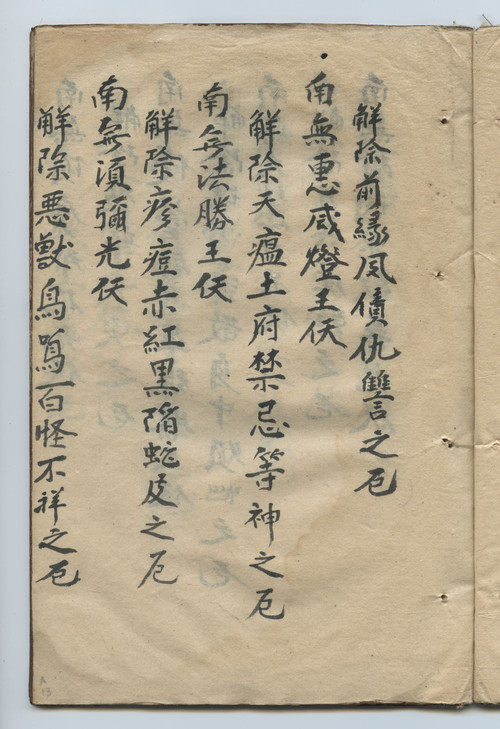 觧除前縁夙債仇讐之厄
南無惠威燈王仸
觧除天瘟土府禁忌等神之厄
南無法勝王仸
觧除疹痘赤紅黑陷蛇皮之厄
南無須彌光仸
觧除悪獸鳥百怪不祥之厄
A
13